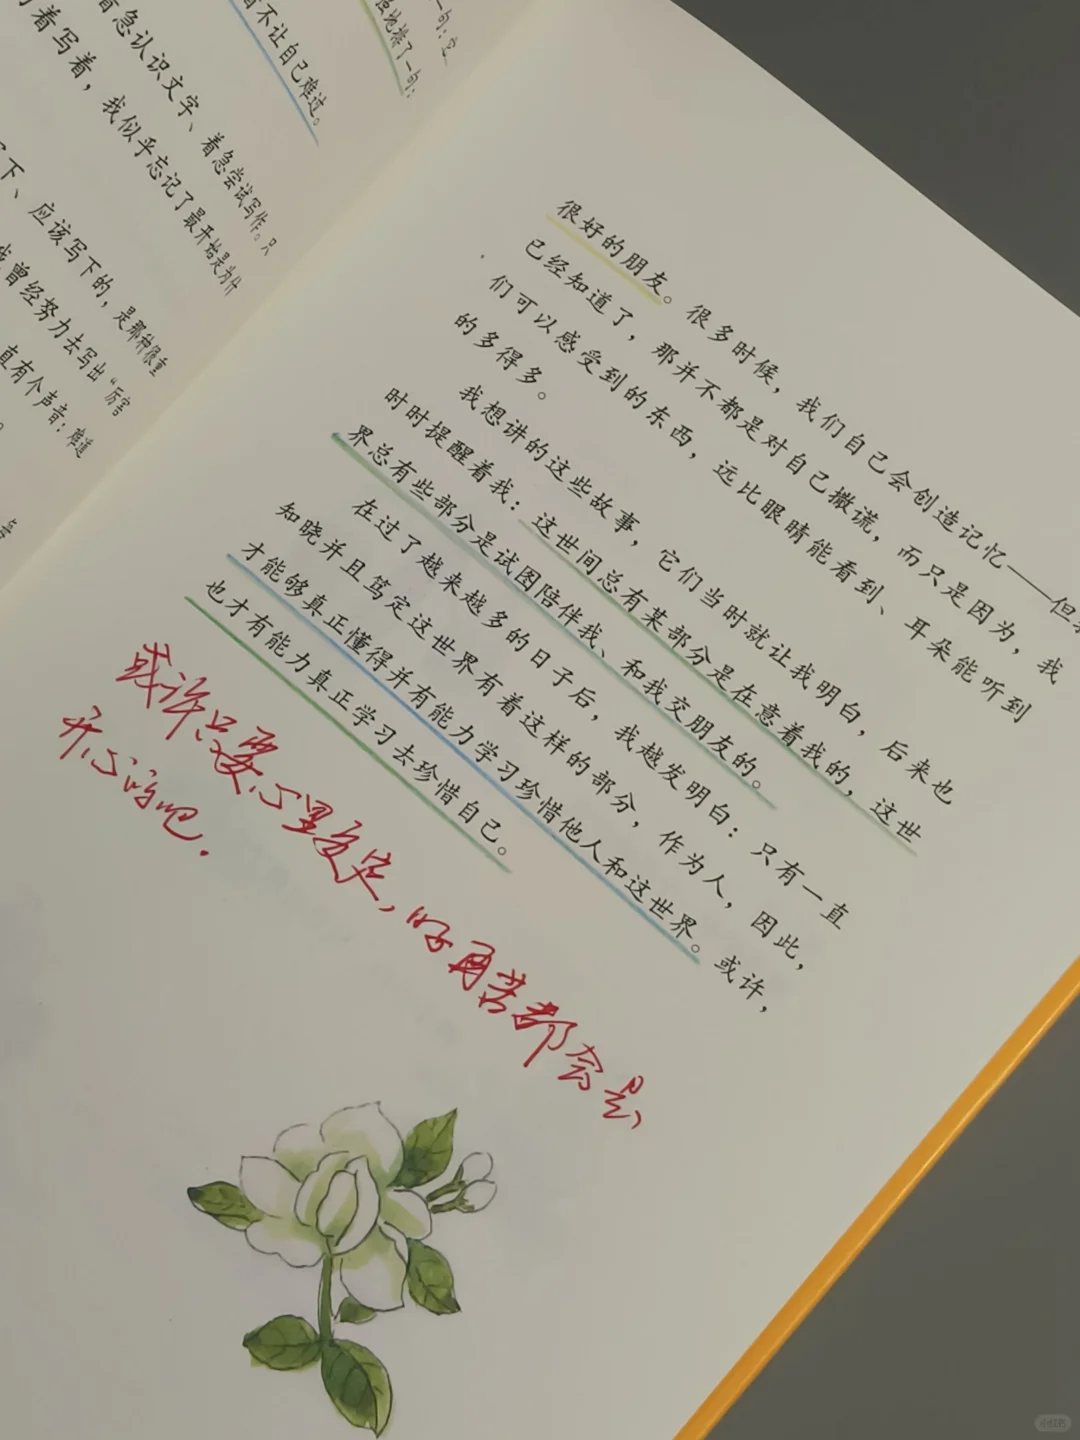 不让自己难过。
着急认识文字、着急尝试写作。只
着写着，我似乎忘记了最开始是为什
下、应该写下的，是那种很重
曾经努力去写出“厉害
直有个声音：难道
很好的朋友。很多时候，我们自己会创造记忆——但
已经知道了，那并不都是对自己撒谎，而只是因为，我
们可以感受到的东西，远比眼睛能看到、耳朵能听到
的多得多。
我想讲的这些故事，它们当时就让我明白，后来也
时时提醒着我：这世间总有某部分是在意着我的，这世
界总有些部分是试图陪伴我、和我交朋友的。
在过了越来越多的日子后，我越发明白：只有一直
知晓并且笃定这世界有着这样的部分，作为人，因此，
才能够真正懂得并有能力学习珍惜他人和这世界。或许，
也才有能力真正学习去珍惜自己。
或许只要心里笃定，再苦都会是
开心的吧．
小红书